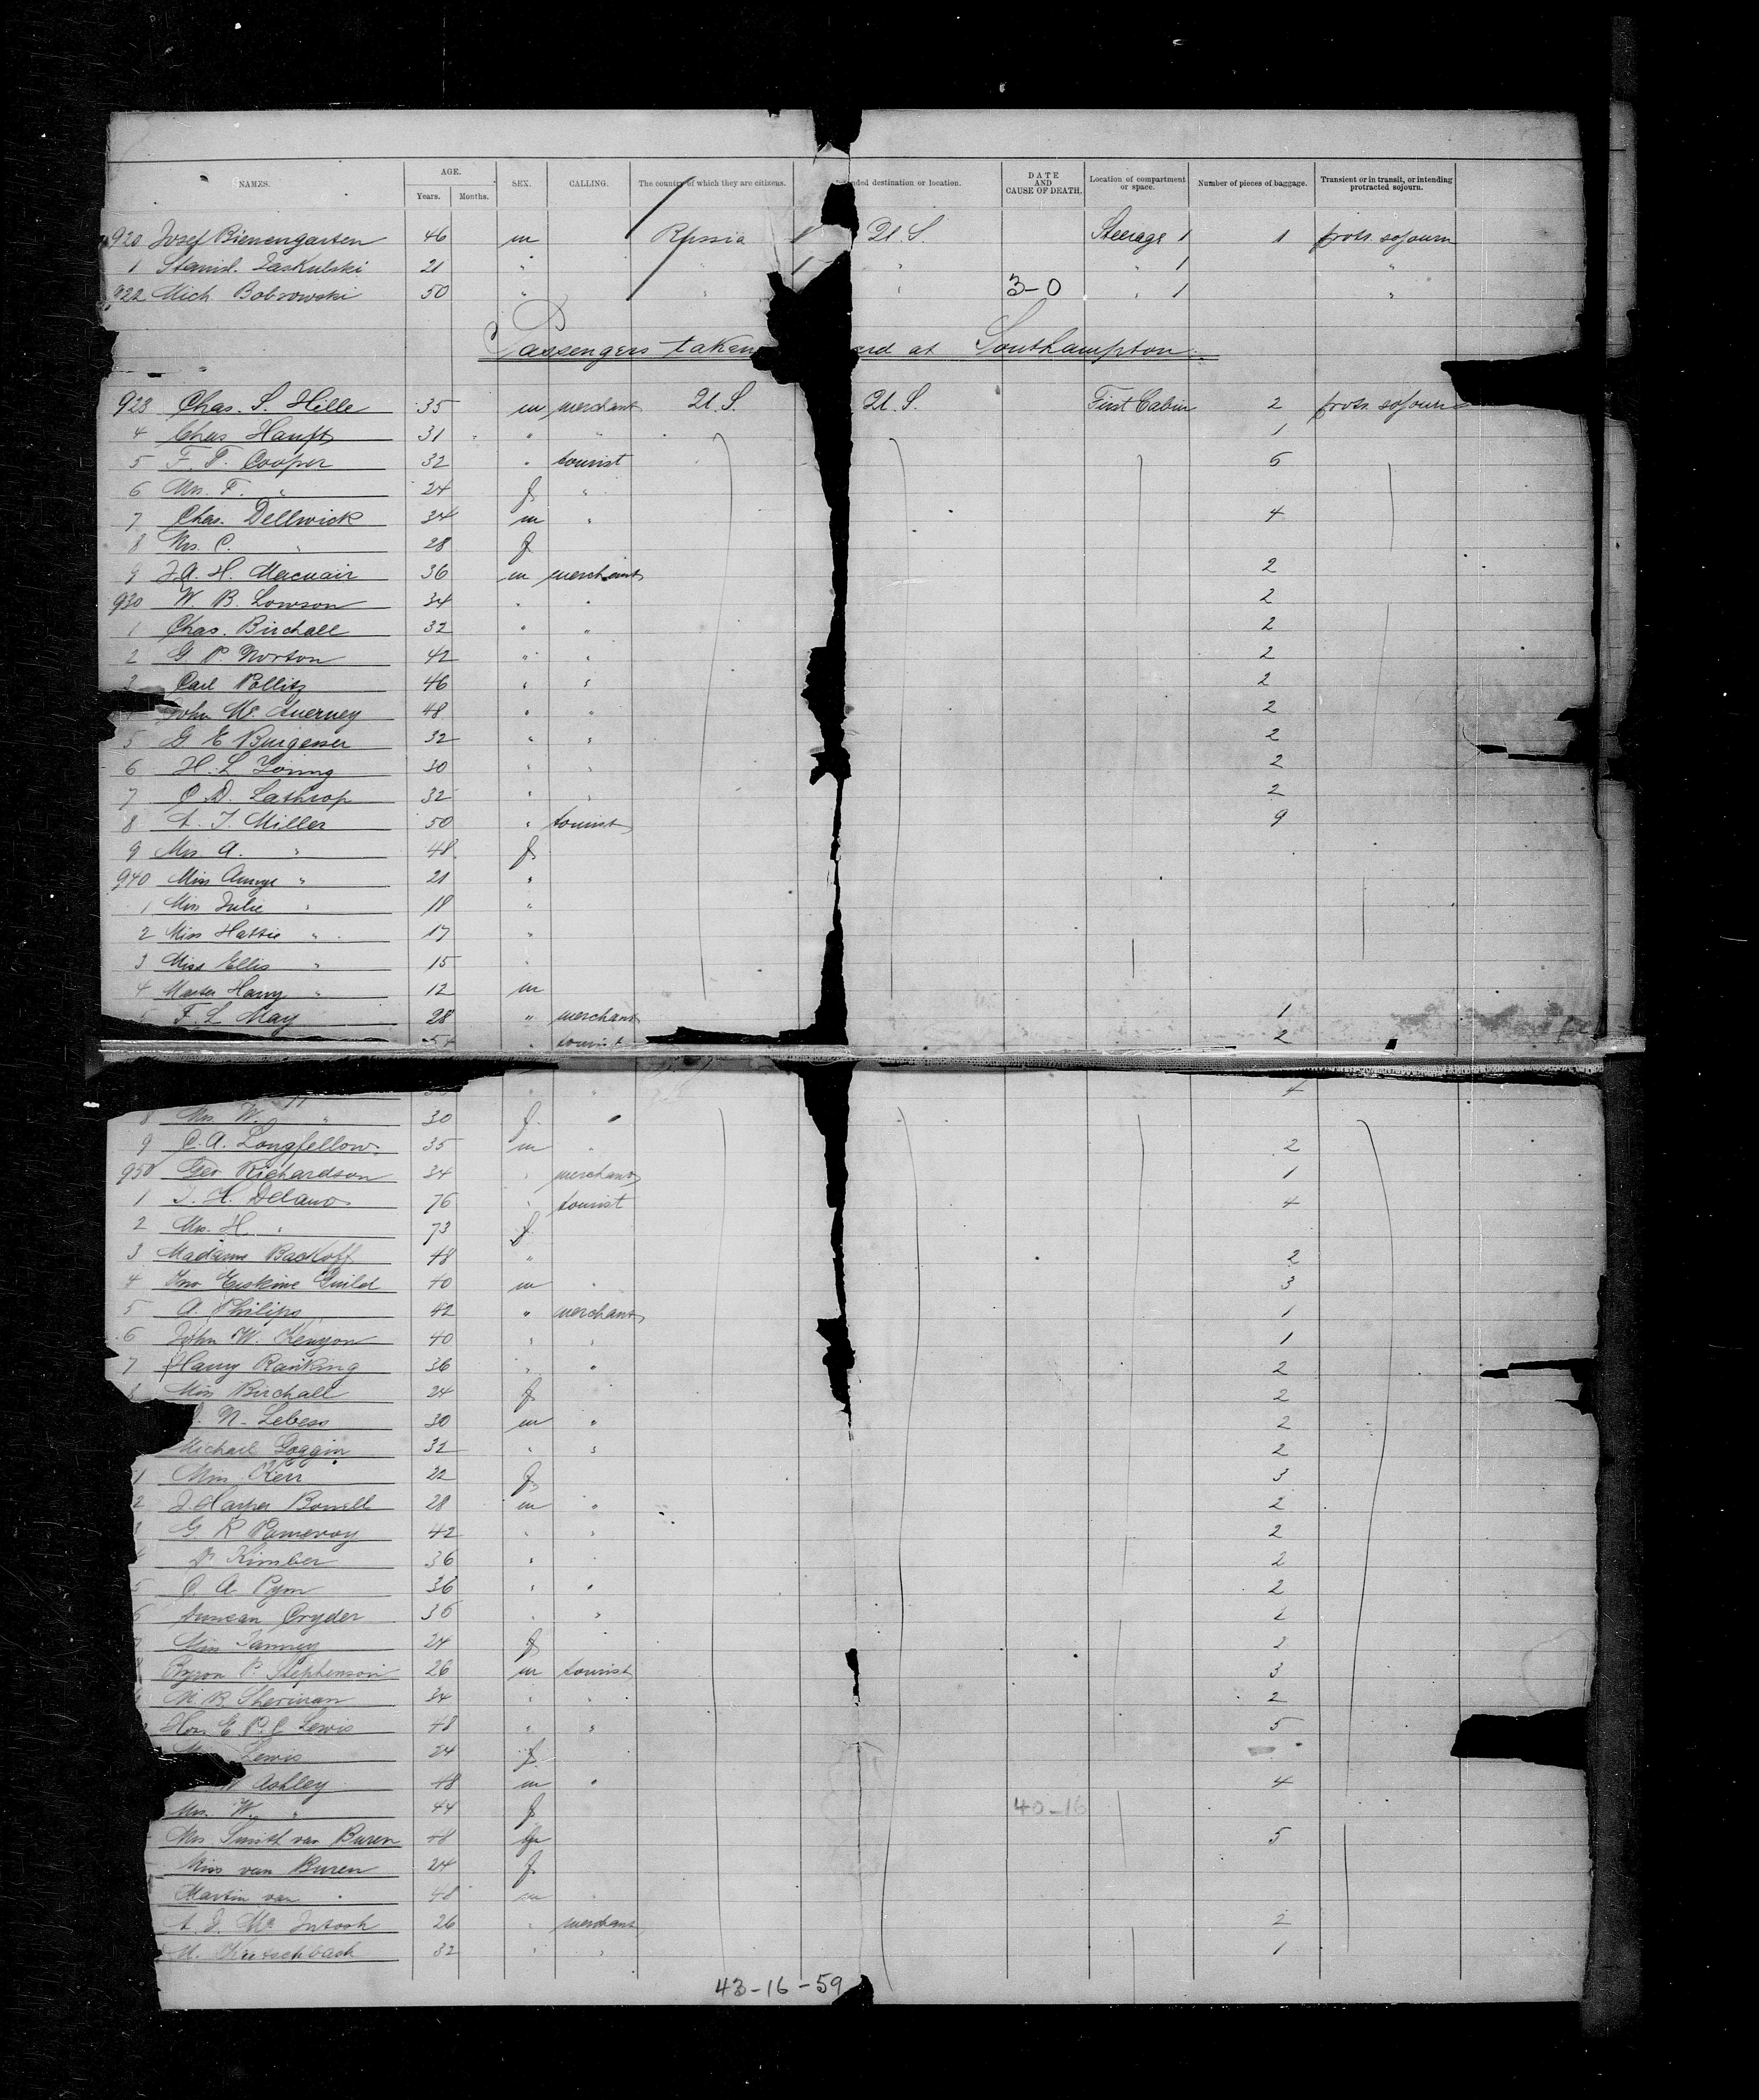 NAMES. AGE. Years. Months. SEX. CALLING. The country of which they are citizens. nded destination or location. DATE AND CAUSE OF DEATH. Location of compartment or space. Number of pieces of baggage. Transient or in transit, or intending protracted sojourn.
920 Josef Bienengarten 46 m Russia U.S. Steerage 1 1 protr. sojourn
1 Stanisl. Jaskulski 21 " " " " 1 "
922 Mich Bobrowski 50 " " " 3-0 " 1 "
Passengers taken ard at Southampton.
923 Chas. S. Hille 35 m merchant U.S. U.S. First Cabin 2 protr. sojourn
4 Chas Hauft 31 " " 1
5 F. P. Cooper 32 " tourist 5
6 Mrs. F. " 24 f "
7 Chas. Dellwick 34 m " 4
8 Mrs. C. " 28 f
9 J. A. H. Macnair 36 m merchant 2
930 W. B. Lowson 34 " " 2
1 Chas. Birchall 32 " " 2
2 G. P. Norton 42 " " 2
3 Carl Pollitz 46 " " 2
John Mc. 48 " " 2
5 G E Burgesser 32 " " 2
6 H. L. 30 " " 2
7 C. D. Lathrop 32 " " 2
8 A. J. Miller 50 " tourist 9
9 Mrs. A. " 48 f
940 Miss " 21 "
1 Miss Julie " 18 "
2 Miss Hattie " 17 "
3 Miss Ellis " 15 "
4 Master Harry " 12 m
5 F. L. May 28 " merchant 1
" tourist 2
" "
8 Mrs. W. " 30 f "
9 C. A. Longfellow 35 m " 2
950 Geo Richardson 34 " merchant 1
1 H. Delano 76 " tourist 4
2 Mrs. H. " 73 f
3 Madame Backoff 48 " 2
4 Jno Erskine Guild 40 m " 3
5 A. Philips 42 " merchant 1
6 John W. Kenyon 40 " " 1
7 Harry Ranking 36 " " 2
8 Miss Birchall 24 f 2
N. Lebess 30 m " 2
Michael Goggin 32 " " 2
1 Miss Kerr 22 f 3
2 J. Harper Bonnell 28 m " 2
3 G. R Pomeroy 42 " " 2
4 Dr Kimber 36 " 2
5 C. A. Pym 36 " " 2
6 Duncan Cryder 36 " " 2
7 Miss 24 f 2
8 Byron P. Stephenson 26 m tourist 3
M B Sherman 34 " " 2
Hon E. P. C. Lewis 48 " " 5
Lewis 24 f
W Ashley 48 m " 4
Mrs. W. " 44 f 40-16
Mrs Smith van Buren 48 5
Miss van Buren 24 f
Martin van " 48 m
A. J. Mc Intosh 26 " merchant 2
M. 32 " " 1
43-16-59